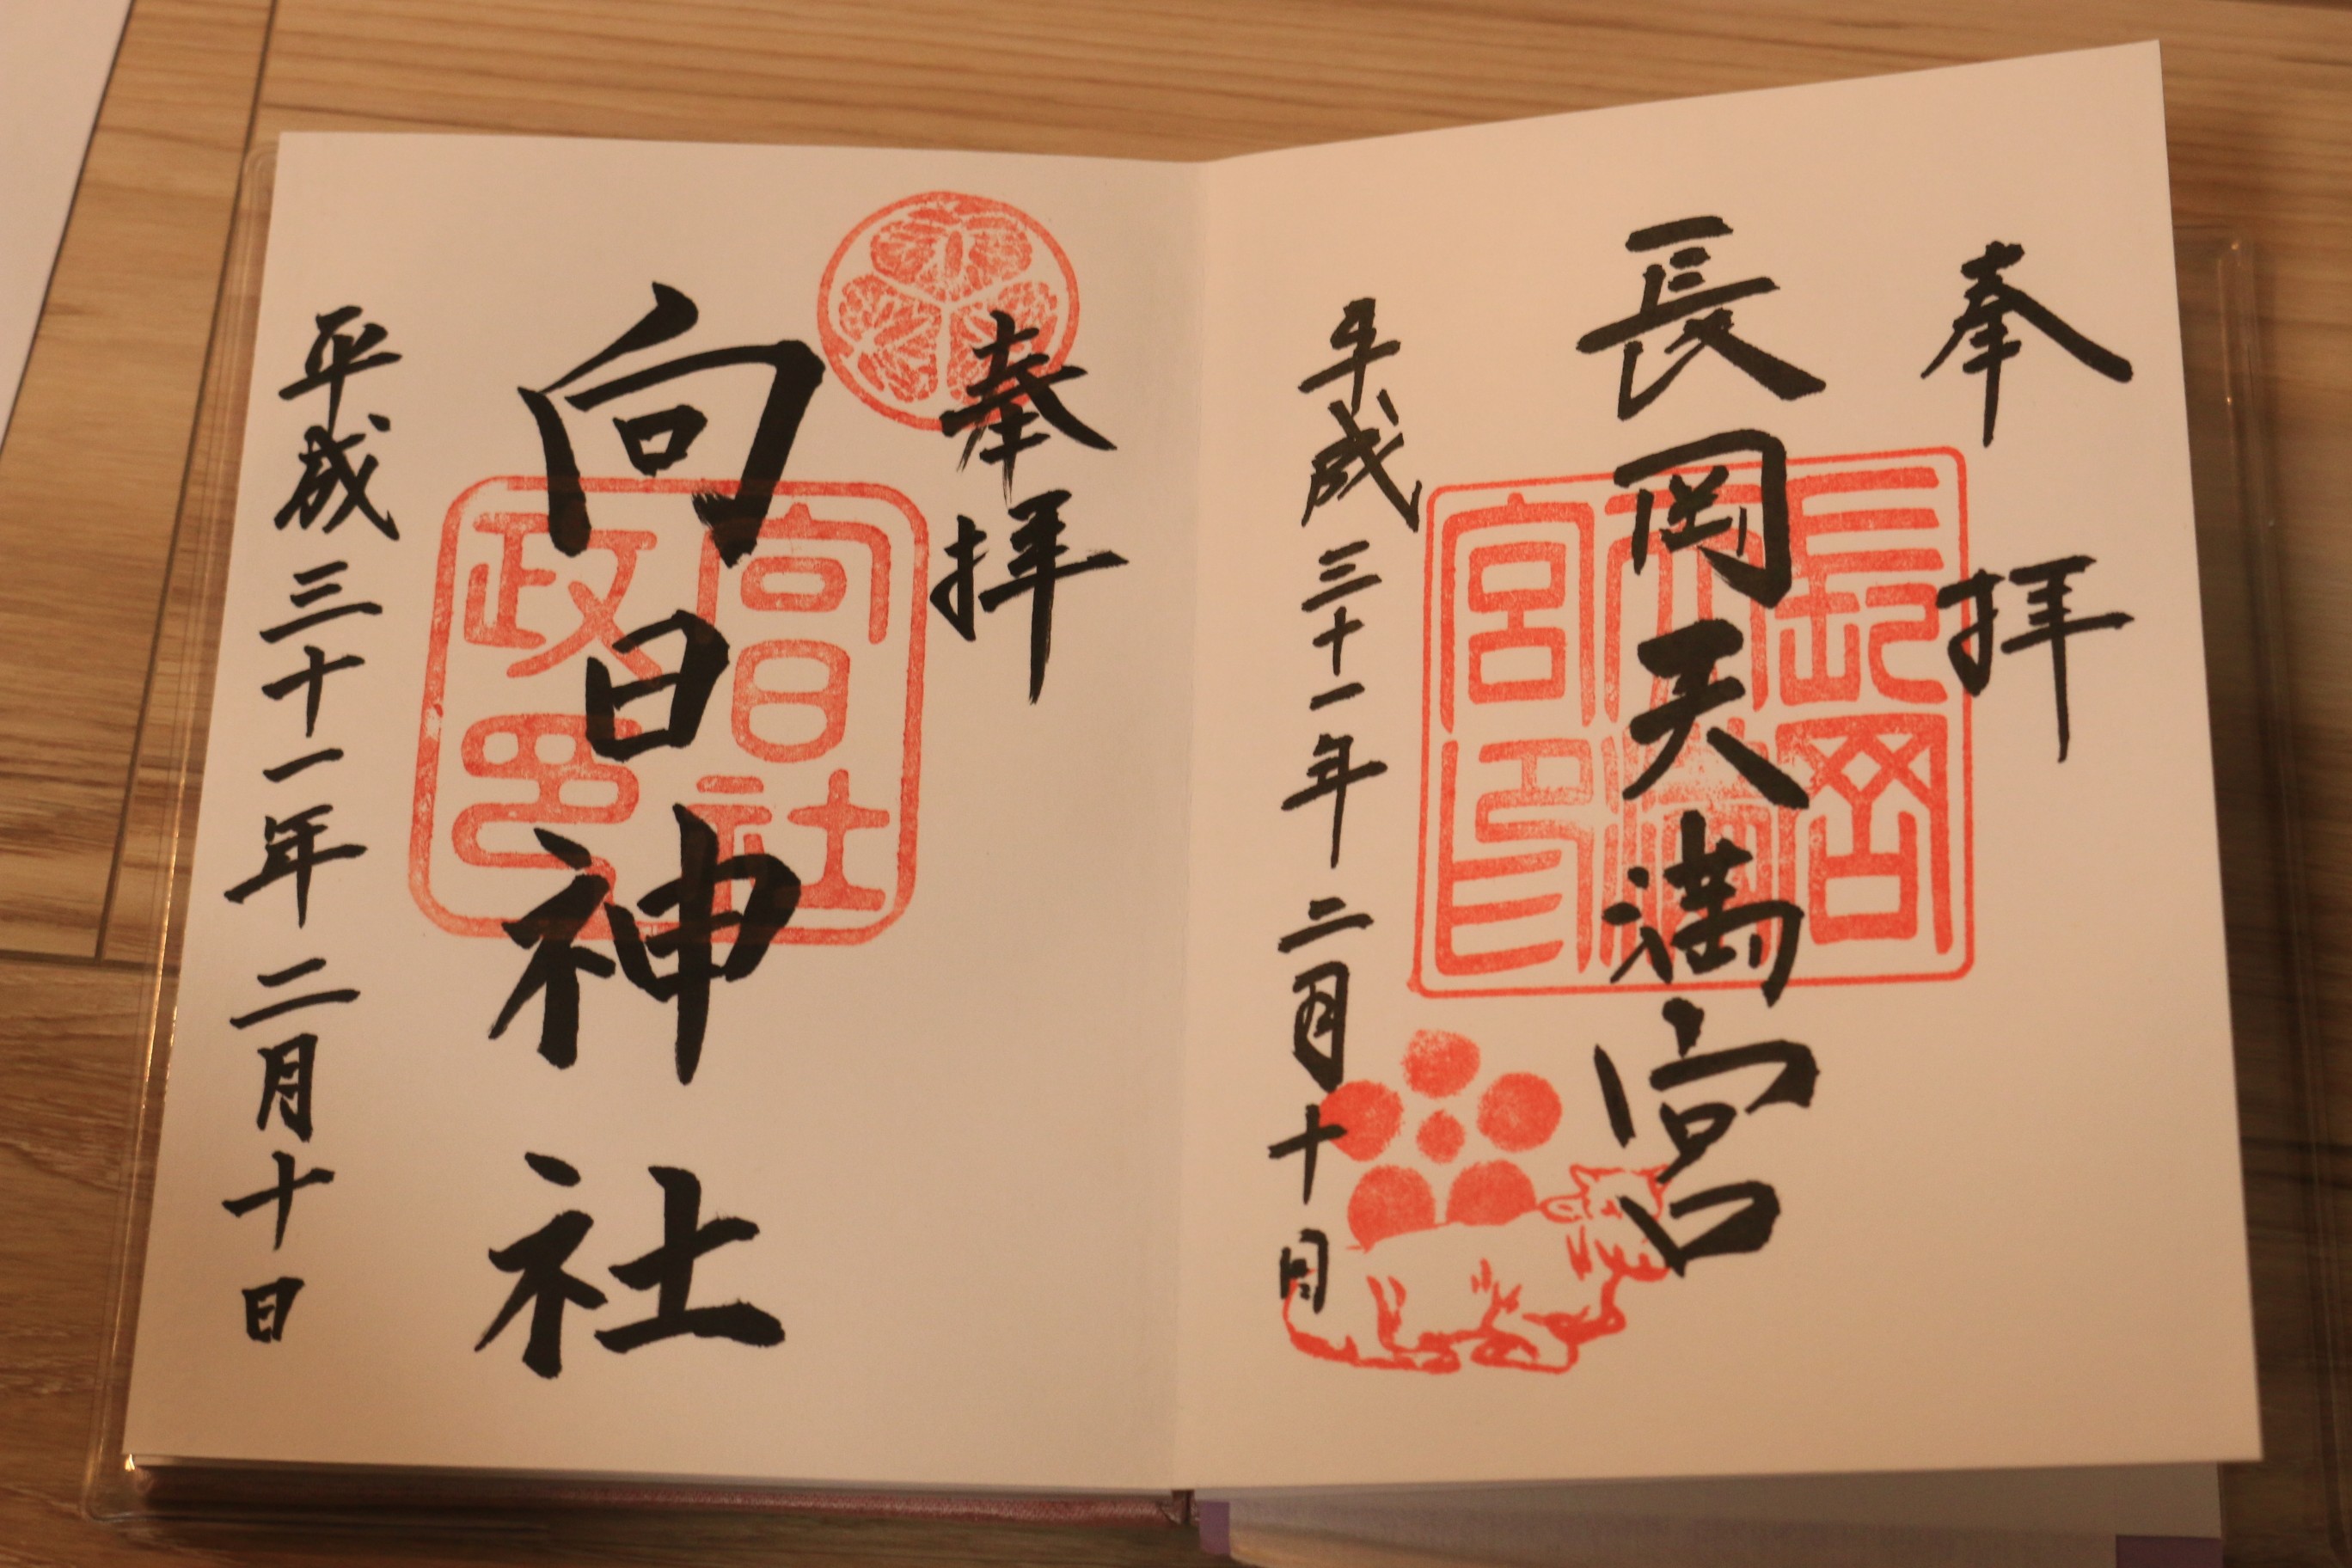 奉拝
長岡天満宮
長岡
天満
宮印
平成三十一年二月十日
奉拝
向日神社
向日社
政印
平成三十一年二月十日